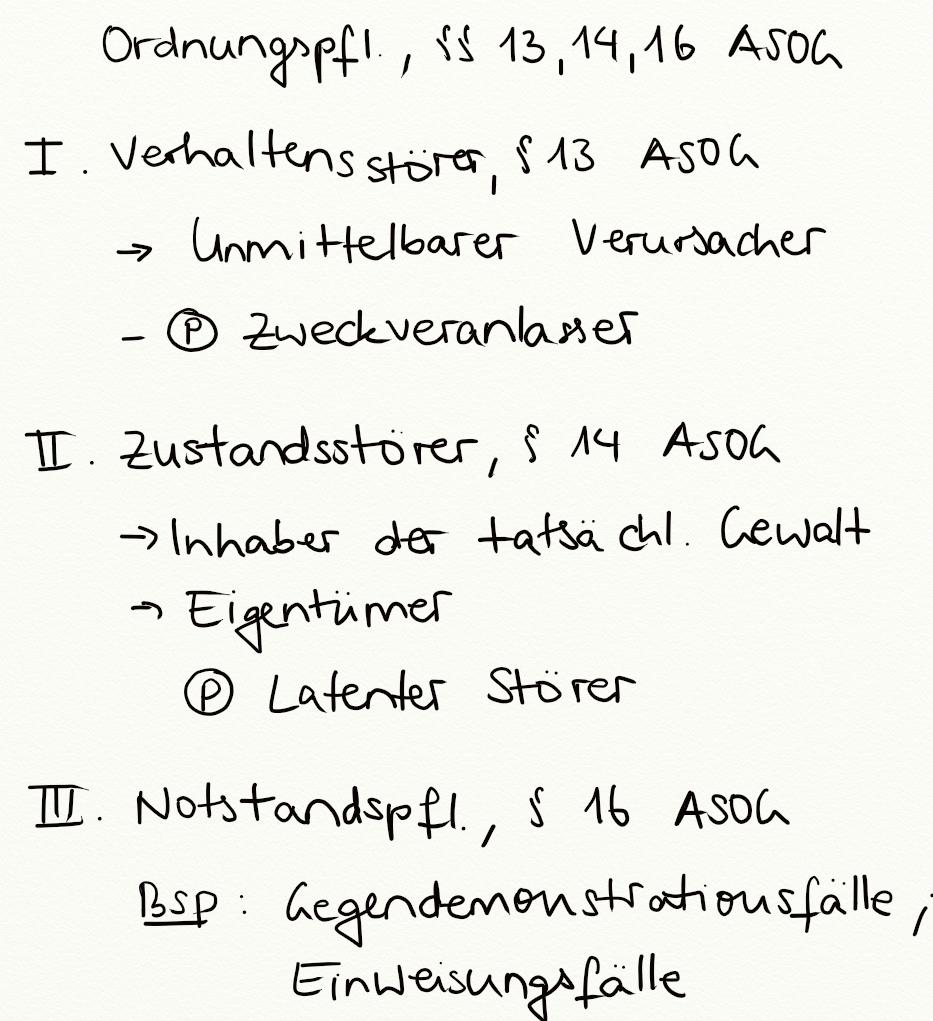 Ordnungspfl., §§ 13, 14, 16 ASOG
I. Verhaltensstörer, § 13 ASOG
→ Unmittelbarer Verursacher
- Ⓟ Zweckveranlasser
II. Zustandsstörer, § 14 ASOG
→ Inhaber der tatsächl. Gewalt
→ Eigentümer
Ⓟ Latenter Störer
III. Notstandspfl., § 16 ASOG
Bsp: Gegendemonstrationsfälle,
Einweisungsfälle